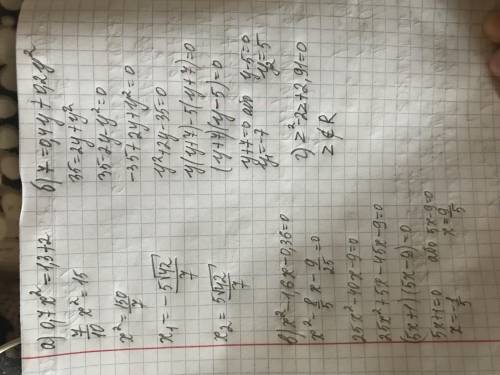 а) 0,7x² = 1,3+2
7/10 x² = 15
x² = 150/7
x₁ = - 5√42/7
x₂ = 5√42/7
б) 7 = 0,4y + 0,2y²
35 = 2y + y²
35 - 2y - y² = 0
-35 + 2y + y² = 0
y² + 2y - 35 = 0
y(y+7) - 5(y+7) = 0
(y+7)(y-5) = 0
y+7=0 або y-5=0
y₁ = -7 y₂ = 5
в) x² - 1,6x - 0,36 = 0
x² - 8/5 x - 9/25 = 0
25x² - 40x - 9 = 0
25x² + 5x - 45x - 9 = 0
(5x+1)(5x-9) = 0
5x+1=0 або 5x-9=0
x = -1/5 x = 9/5
г) z² - 2z + 2,91 = 0
z ∉ R